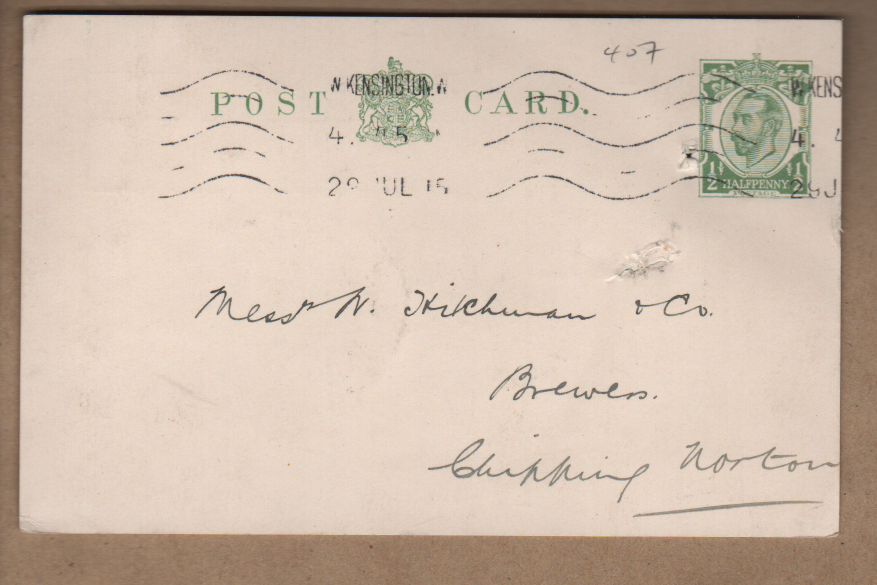 407
POST CARD.
W. KENSINGTON. W
W. KENS
4. 45
4. 4
29 JUL 15
29 J
½ HALFPENNY ½
POSTAGE
Messrs W. Hitchman & Co.
Brewers.
Chipping Norton